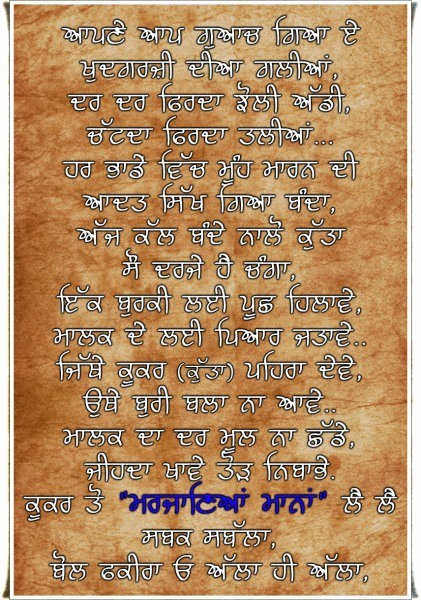 ਆਪਣੇ ਆਪ ਗੁਆਚ ਗਿਆ ਏ
ਖੁਦਗਰਜ਼ੀ ਦੀਆ ਗਲੀਆਂ,
ਦਰ ਦਰ ਫਿਰਦਾ ਝੋਲੀ ਅੱਡੀ,
ਚੱਟਦਾ ਫਿਰਦਾ ਤਲੀਆਂ...
ਹਰ ਭਾਡੇ ਵਿੱਚ ਮੂੰਹ ਮਾਰਨ ਦੀ
ਆਦਤ ਸਿੱਖ ਗਿਆ ਬੰਦਾ,
ਅੱਜ ਕੱਲ ਬੰਦੇ ਨਾਲੋ ਕੁੱਤਾ
ਸੌ ਦਰਜੇ ਹੈ ਚੰਗਾ,
ਇੱਕ ਬੁਰਕੀ ਲਈ ਪੂਛ ਹਿਲਾਵੇ,
ਮਾਲਕ ਦੇ ਲਈ ਪਿਆਰ ਜਤਾਵੇ..
ਜਿੱਥੇ ਕੂਕਰ (ਕੁੱਤਾ) ਪਹਿਰਾ ਦੇਵੇ,
ਉਥੇ ਬੁਰੀ ਬਲਾ ਨਾ ਆਵੇ..
ਮਾਲਕ ਦਾ ਦਰ ਮੂਲ ਨਾ ਛੱਡੇ,
ਜੀਹਦਾ ਖਾਵੇ ਤੋੜ ਨਿਬਾਭੇ.
ਕੂਕਰ ਤੋ "ਮਰਜਾਣਿਆਂ ਮਾਨਾਂ" ਲੈ ਲੈ
ਸਬਕ ਸਬੱਲਾ,
ਬੋਲ ਫਕੀਰਾ ਓ ਅੱਲਾ ਹੀ ਅੱਲਾ,